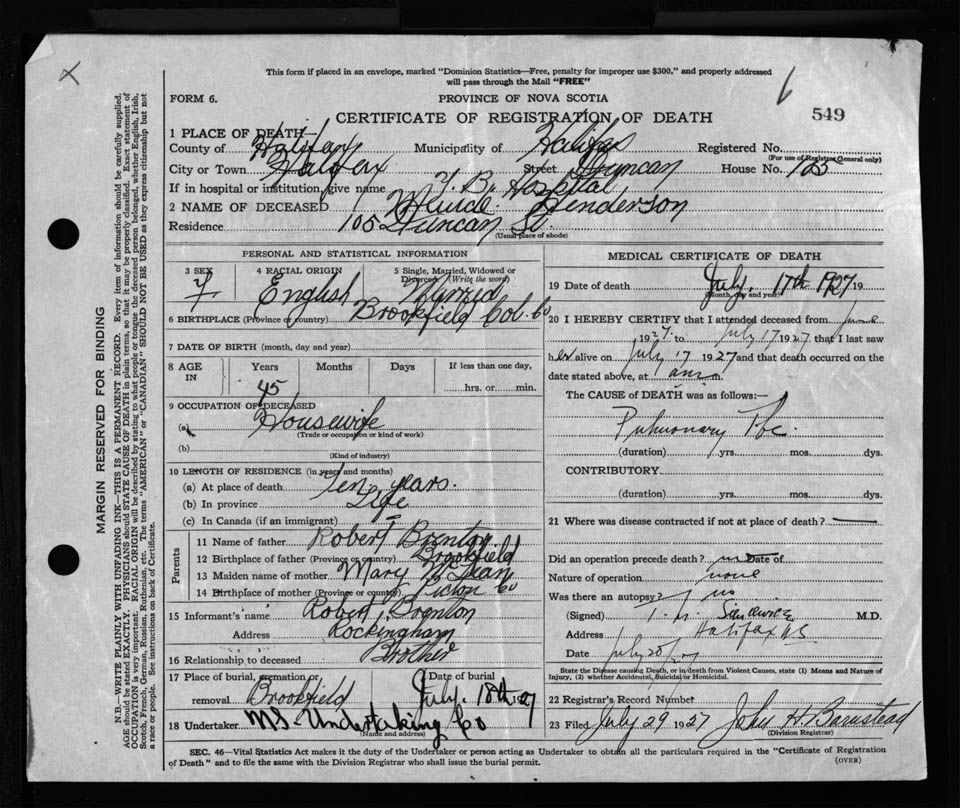 This form if placed in an envelope, marked "Dominion Statistics—Free, penalty for improper use $300," and properly addressed
will pass through the Mail "FREE"
FORM 6.
PROVINCE OF NOVA SCOTIA
CERTIFICATE OF REGISTRATION OF DEATH
549
1 PLACE OF DEATH—
County of Halifax Municipality of Halifax Registered No.
(For use of Registrar General only)
City or Town Halifax Street Duncan House No.
If in hospital or institution, give name T. B. Hospital
2 NAME OF DECEASED Henderson
Residence 105 Duncan St.
(Usual place of abode)
PERSONAL AND STATISTICAL INFORMATION
3 SEX F
4 RACIAL ORIGIN English
5 Single, Married, Widowed or Divorced (Write the word) Married
6 BIRTHPLACE (Province or country) Brookfield Col. Co
7 DATE OF BIRTH (month, day and year)
8 AGE IN Years 45 Months Days If less than one day, hrs. or min.
9 OCCUPATION OF DECEASED
(a) Housewife
(Trade or occupation or kind of work)
(b)
(Kind of industry)
10 LENGTH OF RESIDENCE (in years and months)
(a) At place of death Ten years.
(b) In province Life
(c) In Canada (if an immigrant)
Parents
11 Name of father Robert Brenton
12 Birthplace of father (Province or country) Brookfield
13 Maiden name of mother Mary
14 Birthplace of mother (Province or country) Pictou Co
15 Informant's name Robert Brenton
Address Rockingham
16 Relationship to deceased Brother
17 Place of burial, cremation or removal Brookfield Date of burial July 18th 27
18 Undertaker Undertaking Co
(Name and address)
MEDICAL CERTIFICATE OF DEATH
19 Date of death July. 17th 1927 19
(Month, day and year)
20 I HEREBY CERTIFY that I attended deceased from June
1927 to July 17 1927 that I last saw
her alive on July 17 1927 and that death occurred on the
date stated above, at 1 am m.
The CAUSE of DEATH was as follows:—
Pulmonary Tbc.
(duration) yrs. mos. dys.
CONTRIBUTORY
(duration) yrs. mos. dys.
21 Where was disease contracted if not at place of death? —
Did an operation precede death? no Date of
Nature of operation none
Was there an autopsy? no
(Signed) M.D.
Address Halifax N.S.
Date July
State the Disease causing Death, or in death from Violent Causes, state (1) Means and Nature of
Injury, (2) whether Accidental, Suicidal or Homicidal.
22 Registrar's Record Number
23 Filed July 29 1927 John H. Barnstead
(Division Registrar)
SEC. 46—Vital Statistics Act makes it the duty of the Undertaker or person acting as Undertaker to obtain all the particulars required in the "Certificate of Registration
of Death" and to file the same with the Division Registrar who shall issue the burial permit.
(OVER)
MARGIN RESERVED FOR BINDING
N.B.—WRITE PLAINLY, WITH UNFADING INK—THIS IS A PERMANENT RECORD. Every item of information should be carefully supplied.
AGE should be stated EXACTLY. PHYSICIANS should STATE CAUSE OF DEATH in plain terms, so that it may be properly classified. Exact statement of
OCCUPATION is very important. RACIAL ORIGIN will be described by stating to what people or tongue the deceased person belonged, whether English, Irish,
Scotch, French, German, Russian, Ruthenian, etc. The terms "AMERICAN" or "CANADIAN" SHOULD NOT BE USED as they express citizenship but not
a race or people. See instructions on back of Certificate.